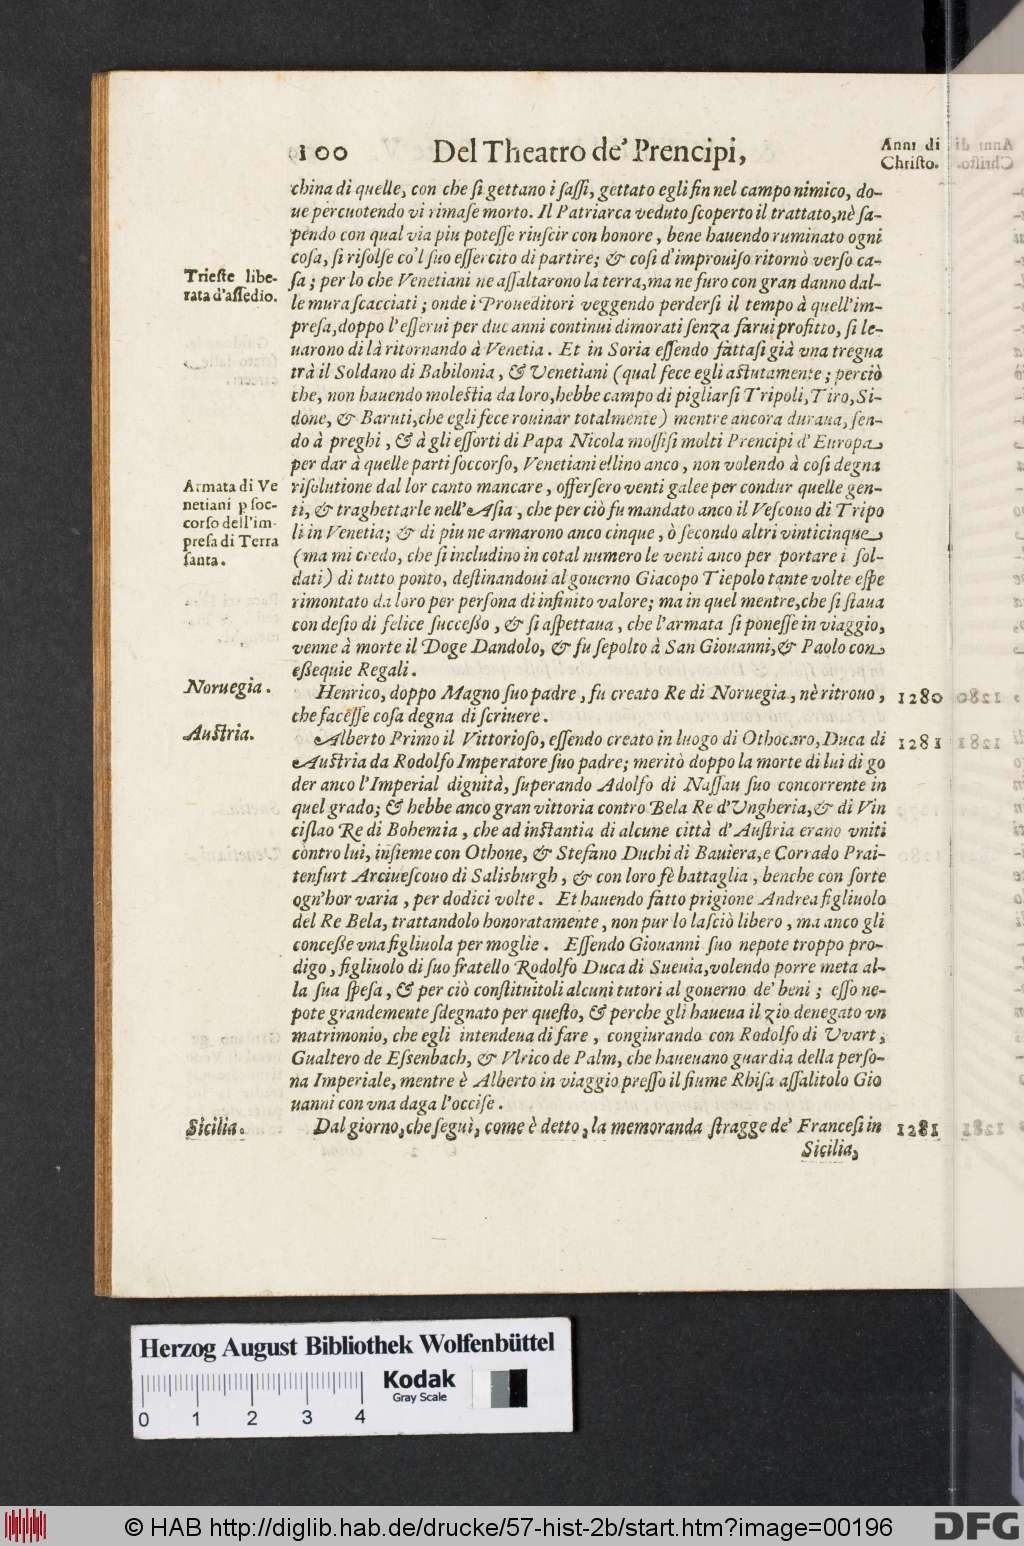 100 Del Theatro de' Prencipi,
Anni di
Christo.
china di quelle, con che ſi gettano i ſaſſi, gettato egli fin nel campo nimico, do-
ue percuotendo vi rimaſe morto. Il Patriarca veduto ſcoperto il trattato, nè ſa-
pendo con qual via piu poteſſe riuſcir con honore, bene hauendo ruminato ogni
coſa, ſi riſolſe co'l ſuo eſſercito di partire; & coſi d'improuiſo ritornò verſo ca-
Trieſte libe-
rata d'aſſedio.
ſa; per lo che Venetiani ne aſſaltarono la terra, ma ne furo con gran danno dal-
le mura ſcacciati; onde i Proueditori veggendo perderſi il tempo à quell'im-
preſa, doppo l'eſſerui per due anni continui dimorati ſenza farui profitto, ſi le-
uarono di là ritornando à Venetia. Et in Soria eſſendo fattaſi già vna tregua
trà il Soldano di Babilonia, & Venetiani (qual fece egli aſtutamente; perciò
che, non hauendo moleſtia da loro, hebbe campo di pigliarſi Tripoli, Tiro, Si-
done, & Baruti, che egli fece rouinar totalmente) mentre ancora duraua, ſen-
do à preghi, & à gli eſſorti di Papa Nicola moſſiſi molti Prencipi d'Europa
per dar à quelle parti ſoccorſo, Venetiani ellino anco, non volendo à coſi degna
Armata di Ve
netiani p ſoc-
corſo dell'im-
preſa di Terra
ſanta.
riſolutione dal lor canto mancare, offerſero venti galee per condur quelle gen-
ti, & traghettarle nell'Aſia, che per ciò fu mandato anco il Veſcouo di Tripo
li in Venetia; & di piu ne armarono anco cinque, ò ſecondo altri vinticinque
(ma mi credo, che ſi includino in cotal numero le venti anco per portare i ſol-
dati) di tutto ponto, deſtinandoui al gouerno Giacopo Tiepolo tante volte eſpe
rimontato da loro per perſona di infinito valore; ma in quel mentre, che ſi ſtaua
con deſio di felice ſucceſſo, & ſi aſpettaua, che l'armata ſi poneſſe in viaggio,
venne à morte il Doge Dandolo, & fu ſepolto à San Giouanni, & Paolo con
eſſequie Regali.
Noruegia.
Henrico, doppo Magno ſuo padre, fu creato Re di Noruegia, nè ritrouo, 1280
che faceſſe coſa degna di ſcriuere.
Auſtria.
Alberto Primo il Vittorioſo, eſſendo creato in luogo di Othocaro, Duca di 1281
Auſtria da Rodolfo Imperatore ſuo padre; meritò doppo la morte di lui di go
der anco l'Imperial dignità, ſuperando Adolfo di Naſſau ſuo concorrente in
quel grado; & hebbe anco gran vittoria contro Bela Re d'Vngheria, & di Vin
ciſlao Re di Bohemia, che ad inſtantia di alcune città d'Auſtria erano vniti
còntro lui, inſieme con Othone, & Stefano Duchi di Bauiera, e Corrado Prai-
tenfurt Arciueſcouo di Salisburgh, & con loro fè battaglia, benche con ſorte
ogn'hor varia, per dodici volte. Et hauendo fatto prigione Andrea figliuolo
del Re Bela, trattandolo honoratamente, non pur lo laſciò libero, ma anco gli
conceſſe vna figliuola per moglie. Eſſendo Giouanni ſuo nepote troppo pro-
digo, figliuolo di ſuo fratello Rodolfo Duca di Sueuia, volendo porre meta al-
la ſua ſpeſa, & per ciò conſtituitoli alcuni tutori al gouerno de' beni; eſſo ne-
pote grandemente ſdegnato per queſto, & perche gli haueua il zio denegato vn
matrimonio, che egli intendeua di fare, congiurando con Rodolfo di Vvart,
Gualtero de Eſsenbach, & Vlrico de Palm, che haueuano guardia della perſo-
na Imperiale, mentre è Alberto in viaggio preſſo il fiume Rhiſa aſſalitolo Gio
uanni con vna daga l'occiſe.
Sicilia.
Dal giorno, che ſeguì, come è detto, la memoranda ſtragge de' Franceſi in 1281
Sicilia,
Herzog August Bibliothek Wolfenbüttel
Kodak
Gray Scale
0 1 2 3 4
© HAB http://diglib.hab.de/drucke/57-hist-2b/start.htm?image=00196
DFG